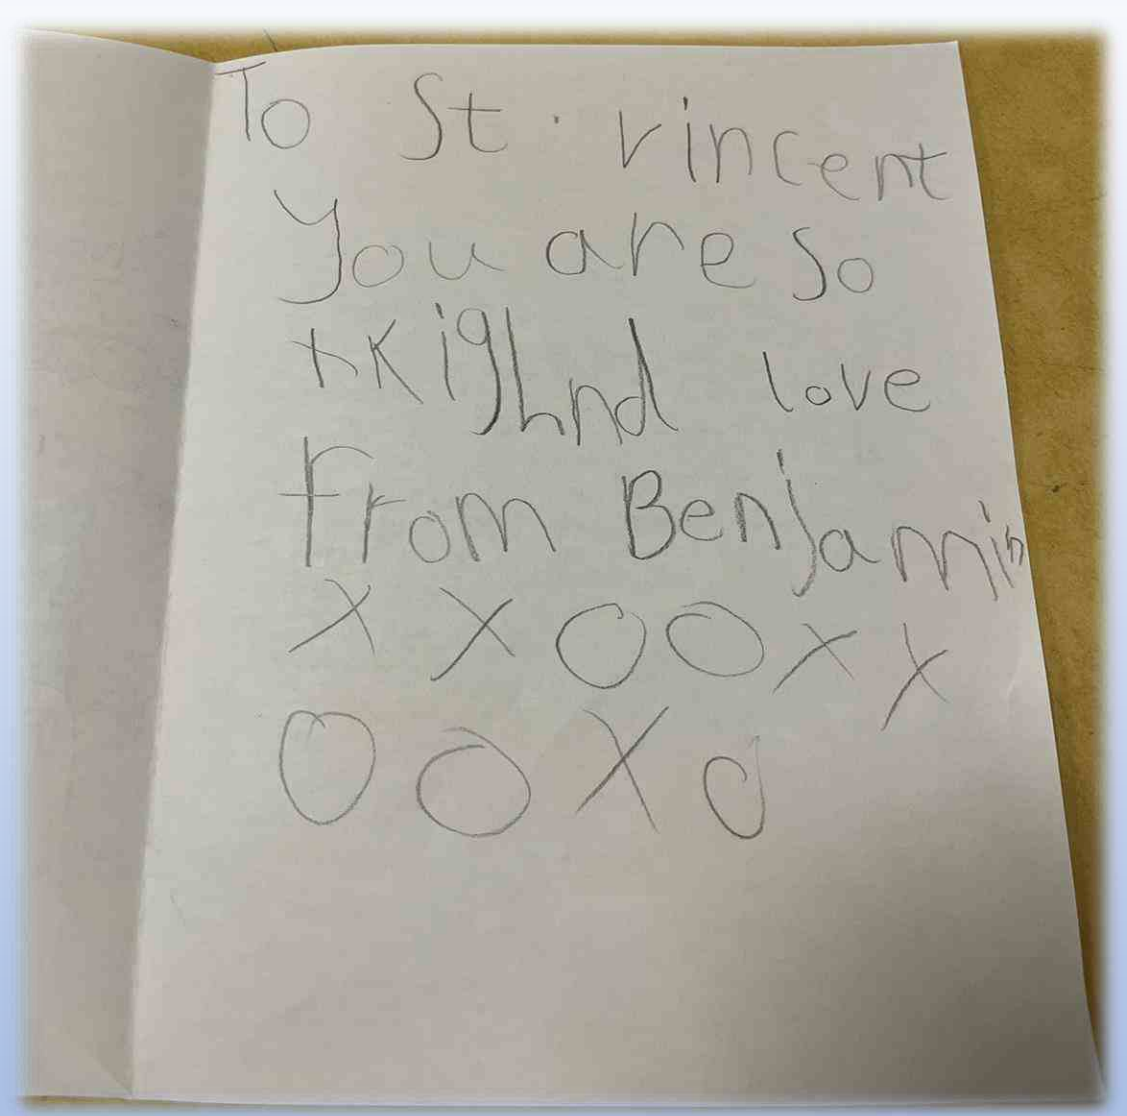 To St. Vincent
You are so
kighnd love
From Benjamin
x x O O x x
O O X O